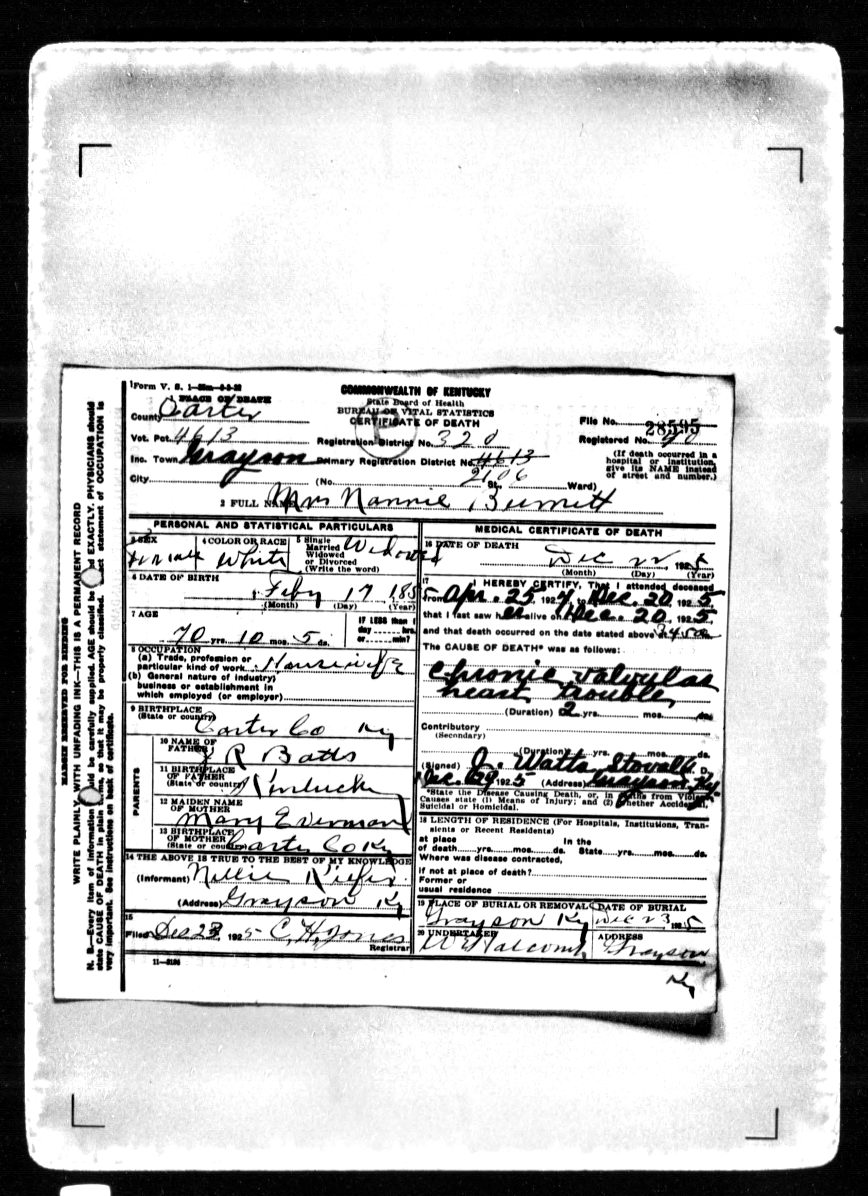 Form V. S. 1—
COMMONWEALTH OF KENTUCKY
State Board of Health
BUREAU OF VITAL STATISTICS
CERTIFICATE OF DEATH
1 PLACE OF DEATH
County Carter
File No. 28595
Vot. Pct. 4613 Registration District No. 320 Registered No.
Inc. Town Grayson Primary Registration District No. 4613
2106
(If death occurred in a hospital or institution, give its NAME instead of street and number.)
City (No. St., Ward)
2 FULL NAME Mrs Nannie Burnett
PERSONAL AND STATISTICAL PARTICULARS
3 SEX Female
4 COLOR OR RACE White
5 Single Married Widowed or Divorced (Write the word) Widowed
6 DATE OF BIRTH
Feby 17 1855
(Month) (Day) (Year)
7 AGE
70 yrs. 10 mos. 5 ds.
IF LESS than 1 day hrs. or min?
8 OCCUPATION
(a) Trade, profession or
particular kind of work Housewife
(b) General nature of industry
business or establishment in
which employed (or employer)
9 BIRTHPLACE
(State or country) Carter Co Ky
PARENTS
10 NAME OF FATHER J R Batts
11 BIRTHPLACE OF FATHER (State or country) Kentucky
12 MAIDEN NAME OF MOTHER Mary Everman
13 BIRTHPLACE OF MOTHER (State or country) Carter Co Ky
14 THE ABOVE IS TRUE TO THE BEST OF MY KNOWLEDGE
(Informant) Nellie
(Address) Grayson Ky
15
Filed Dec 23 1925 C. H. Jones
Registrar
11—3184
MEDICAL CERTIFICATE OF DEATH
16 DATE OF DEATH
Dec 22 1925
(Month) (Day) (Year)
17 I HEREBY CERTIFY, That I attended deceased
from Apr. 25 1924, to Dec. 20 1925
that I last saw her alive on Dec. 20 1925
and that death occurred on the date stated above
The CAUSE OF DEATH* was as follows:
Chronic valvular
heart trouble
(Duration) 2 yrs. mos. ds.
Contributory
(Secondary)
(Duration) yrs. mos. ds.
(Signed) J. Watts Stovall M. D.
Dec. 1925 (Address) Grayson, Ky.
*State the Disease Causing Death, or, in deaths from Violent
Causes state (1) Means of Injury; and (2) whether Accidental,
Suicidal or Homicidal.
18 LENGTH OF RESIDENCE (For Hospitals, Institutions, Transients or Recent Residents)
at place of death yrs. mos. ds. In the State yrs. mos. ds.
Where was disease contracted,
if not at place of death?
Former or
usual residence
19 PLACE OF BURIAL OR REMOVAL Grayson Ky
DATE OF BURIAL Dec 23 1925
20 UNDERTAKER W E Halcomb
ADDRESS Grayson
Ky
MARGIN RESERVED FOR BINDING
WRITE PLAINLY, WITH UNFADING INK—THIS IS A PERMANENT RECORD
N. B.—Every item of information should be carefully supplied. AGE should be stated EXACTLY. PHYSICIANS should
state CAUSE OF DEATH in plain terms, so that it may be properly classified. Exact statement of OCCUPATION is
very important. See instructions on back of certificate.